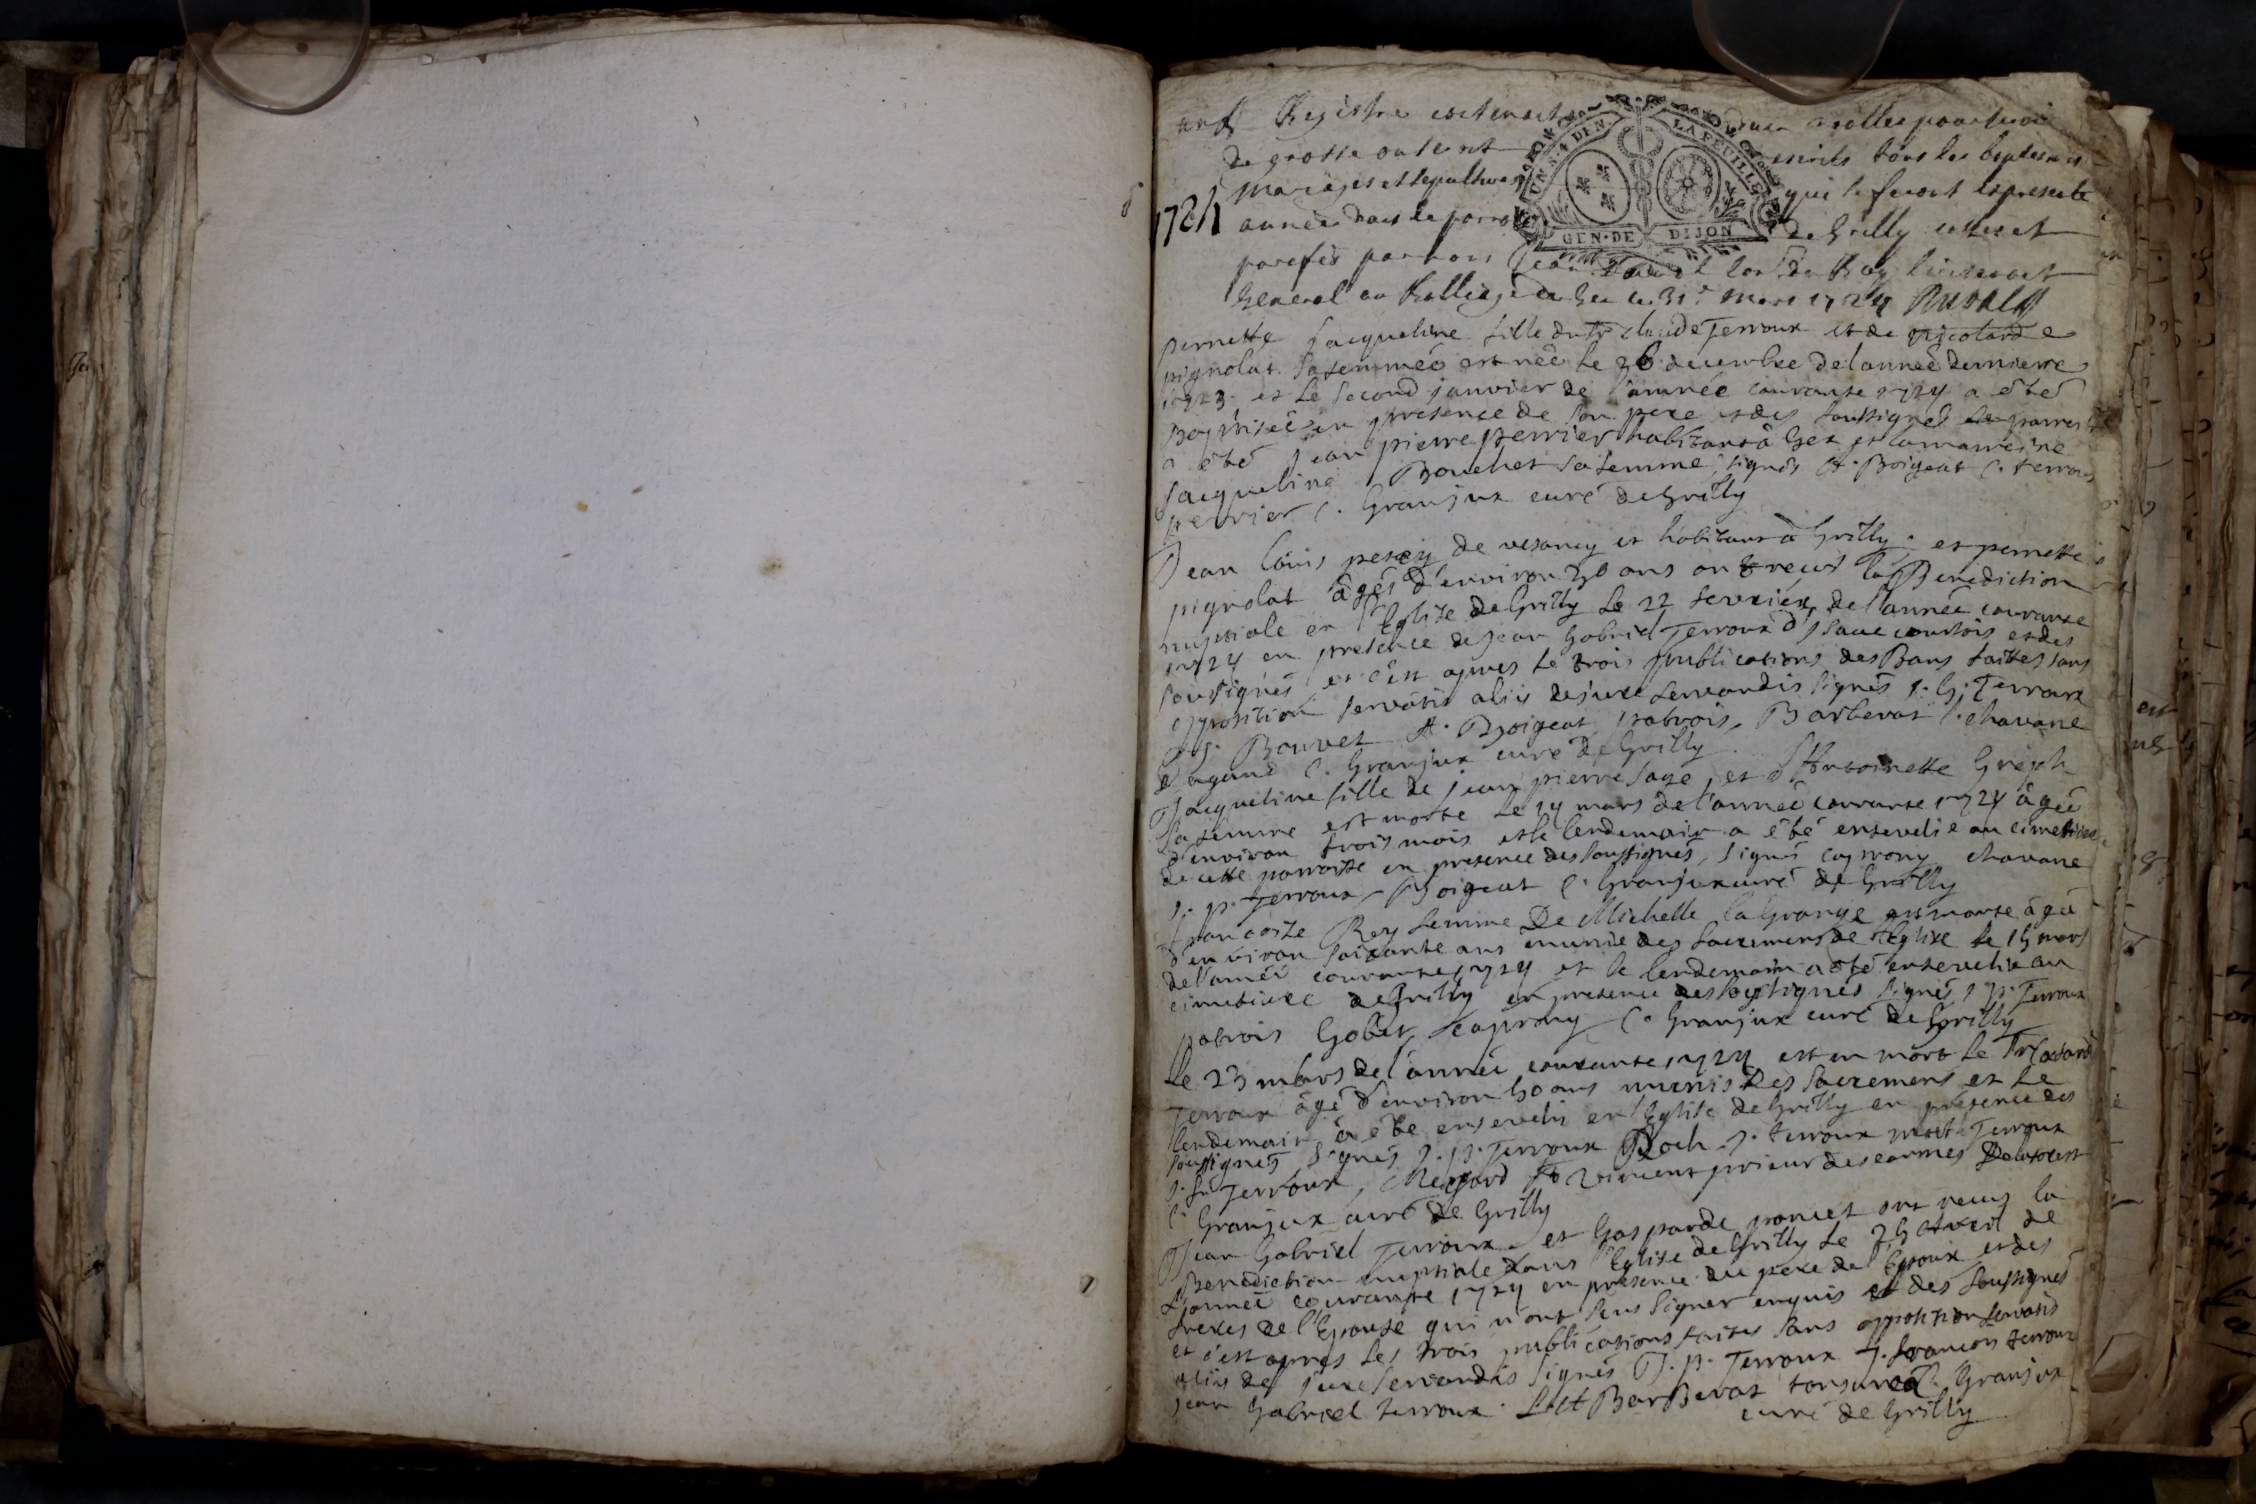 Registre contenant
de grosse
UN S. 4 DEN. LA FEUILLE
mariages et sepultures
GEN. DE DIJON
tous les baptesmes
qui se feront la presente
1724
année dans la parroisse
de Grilly
parafés par nous Jean du Roy lieutenant
General au Balliage de Gex ce 31e mars 1724
pernette Jacqueline fille de claude Terroux et de nicolarde
pignolat sa femme est née le 26 decembre de l'année derniere
1723 et le second janvier de l'année courante 1724 a été
Baptisée en presence de son pere et des soussignés le parrein
a été Jean pierre perrier habitant à Gex et la marreine
Jacqueline Bouchet sa femme, signés A. Boigeat C. terroux
perrier C. Granjux curé de Grilly
Jean Louis de vesancy et habitant à Grilly, et pernette
pignolat âgés d'environ 30 ans ont receus la Benediction
nuptiale en l'Eglise de Grilly le 22 fevrier de l'année courante
1724 en presence de Jean Gabriel Terroux d'Isaac courtois et des
soussignés et c'est apres le trois publications des Bans faittes sans
opposition servatis aliis de jure servandis signés J. G. Terroux
Bouvet A. Boigeat patrois, Barberat C. chavane
C. Granjux curé de Grilly
Jacqueline fille de jean pierre Sage et d'Antoinette
sa femme est morte le 14 mars de l'année courante 1724 âgée
d'environ trois mois et le lendemain a été ensevelie au cimetiere
de cette parroisse en presence des soussignés, signés caprony chavane
J. p. Terroux Boigeat C. Granjux curé de Grilly
francoise Rey femme De Michelle la Grange est morte âgée
d'environ soixante ans munie des sacremens de l'Eglise le 15 mars
de l'année courante 1724 et le lendemain a été ensevelie au
cimetiere de Grilly en presence des soussignés signés J. p. Terroux
patrois Gobet caprony C. Granjux curé de Grilly
Le 23 mars de l'année courante 1724 est en mort le Sr
Terroux âgé d'environ 50 ans munis des sacremens et le
lendemain a été ensevelis en l'Eglise de Grilly en presence des
soussignés signés J. p. Terroux Roch J. terroux Terroux
Terroux, vincent prieur des carmes
C. Granjux curé de Grilly
Jean Gabriel Terroux et Gasparde poncet ont receus la
Benediction nuptiale dans l'Eglise de Grilly le 25 Avril de
L'année courante 1724 en presence du pere de l'Epoux et des
freres de l'Epouse qui n'ont sceus signer enquis et des soussignés
et c'est apres les trois publications faites sans opposition servatis
aliis de jure servandis signés J. p. Terroux J. francois terroux
jean Gabriel terroux. BarBerat tonsuré C. Granjux
curé de Grilly